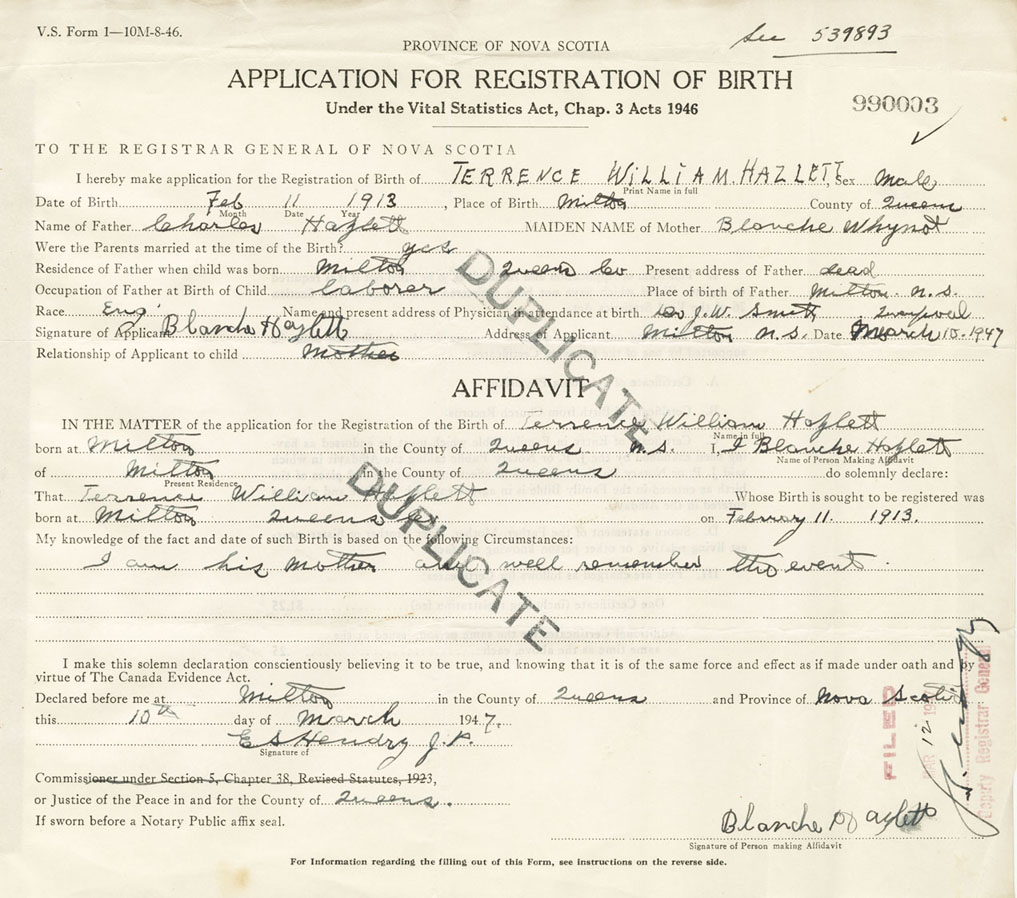 V.S. Form 1—10M-8-46.
See 539893
PROVINCE OF NOVA SCOTIA
APPLICATION FOR REGISTRATION OF BIRTH
Under the Vital Statistics Act, Chap. 3 Acts 1946
990003
TO THE REGISTRAR GENERAL OF NOVA SCOTIA
I hereby make application for the Registration of Birth of TERRENCE WILLIAM HAZLETT Sex Male
Print Name in full
Date of Birth Feb 11 1913, Place of Birth Milton County of Queens
Month Date Year
Name of Father Charles Hazlett MAIDEN NAME of Mother Blanche Whynot
Were the Parents married at the time of the Birth? yes
Residence of Father when child was born Milton Queens Co Present address of Father dead
Occupation of Father at Birth of Child laborer Place of birth of Father Milton. N.S.
Race Eng Name and present address of Physician in attendance at birth Dr J.W. Smith
Signature of Applicant Blanche Hazlett Address of Applicant Milton N.S. Date March 10. 1947
Relationship of Applicant to child Mother
DUPLICATE
AFFIDAVIT
IN THE MATTER of the application for the Registration of the Birth of Terrence William Hazlett
Name in full
born at Milton in the County of Queens N.S. I, I Blanche Hazlett
Name of Person Making Affidavit
of Milton in the County of Queens do solemnly declare:
Present Residence
That Terrence William Hazlett Whose Birth is sought to be registered was
born at Milton Queens Co on February 11. 1913.
My knowledge of the fact and date of such Birth is based on the following Circumstances:
I am his Mother and well remember the event.
DUPLICATE
I make this solemn declaration conscientiously believing it to be true, and knowing that it is of the same force and effect as if made under oath and by
virtue of The Canada Evidence Act.
Declared before me at Milton in the County of Queens and Province of Nova Scotia
this 10th day of March 1947.
E S Hendry J.P.
Signature of
Commissioner under Section 5, Chapter 38, Revised Statutes, 1923,
or Justice of the Peace in and for the County of Queens.
If sworn before a Notary Public affix seal.
FILED
MAR 12 19
Deputy Registrar General
Blanche Hazlett
Signature of Person making Affidavit
For Information regarding the filling out of this Form, see instructions on the reverse side.